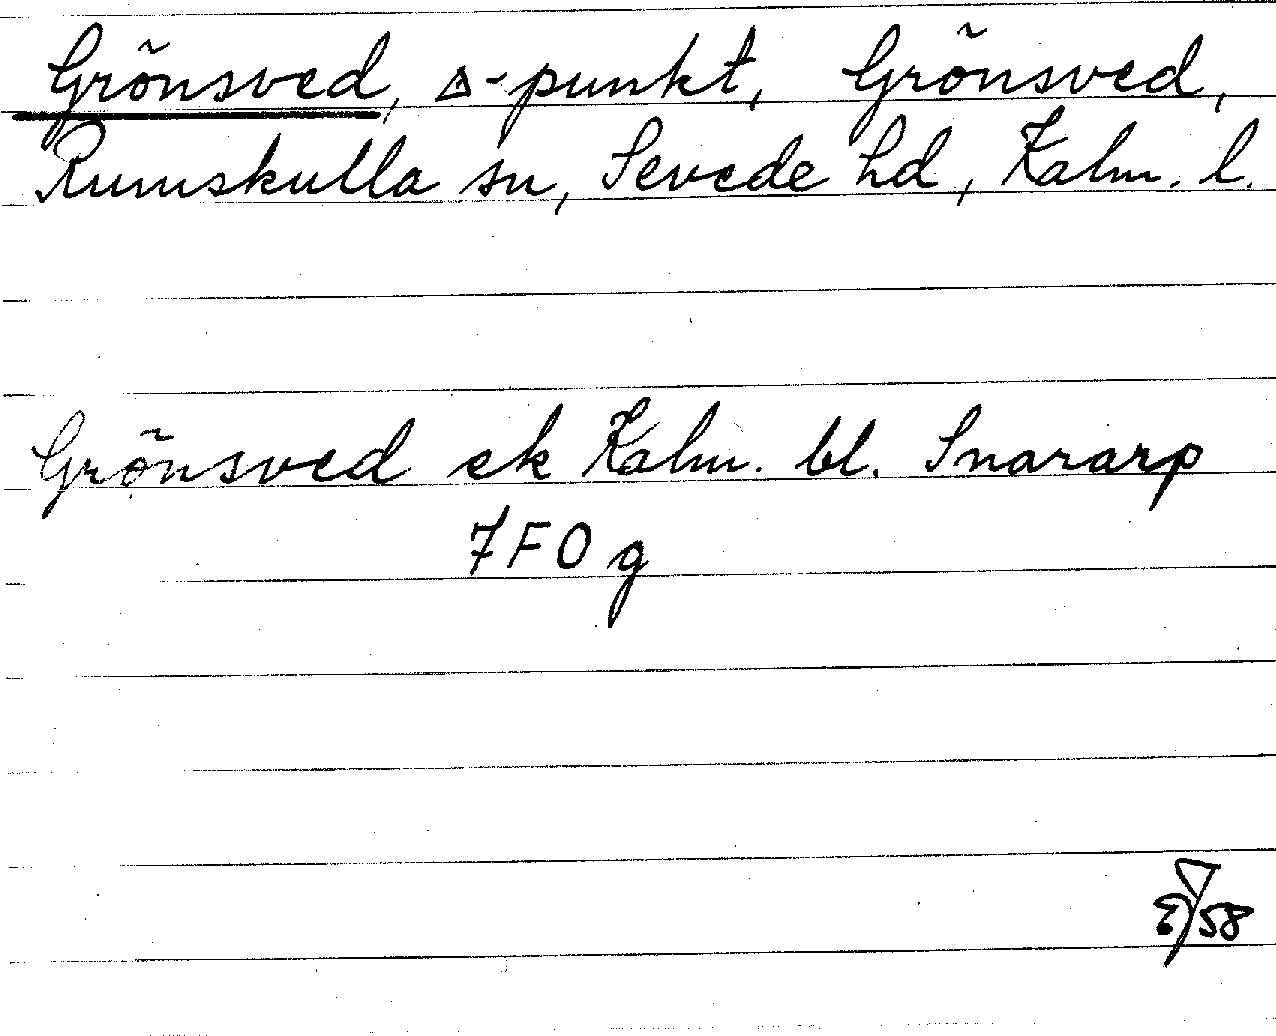 Grönsved, Δ-punkt, Grönsved,
Rumskulla sn, Sevede hd, Kalm. l.
Grönsved ek Kalm. bl. Snararp
7F0g
58